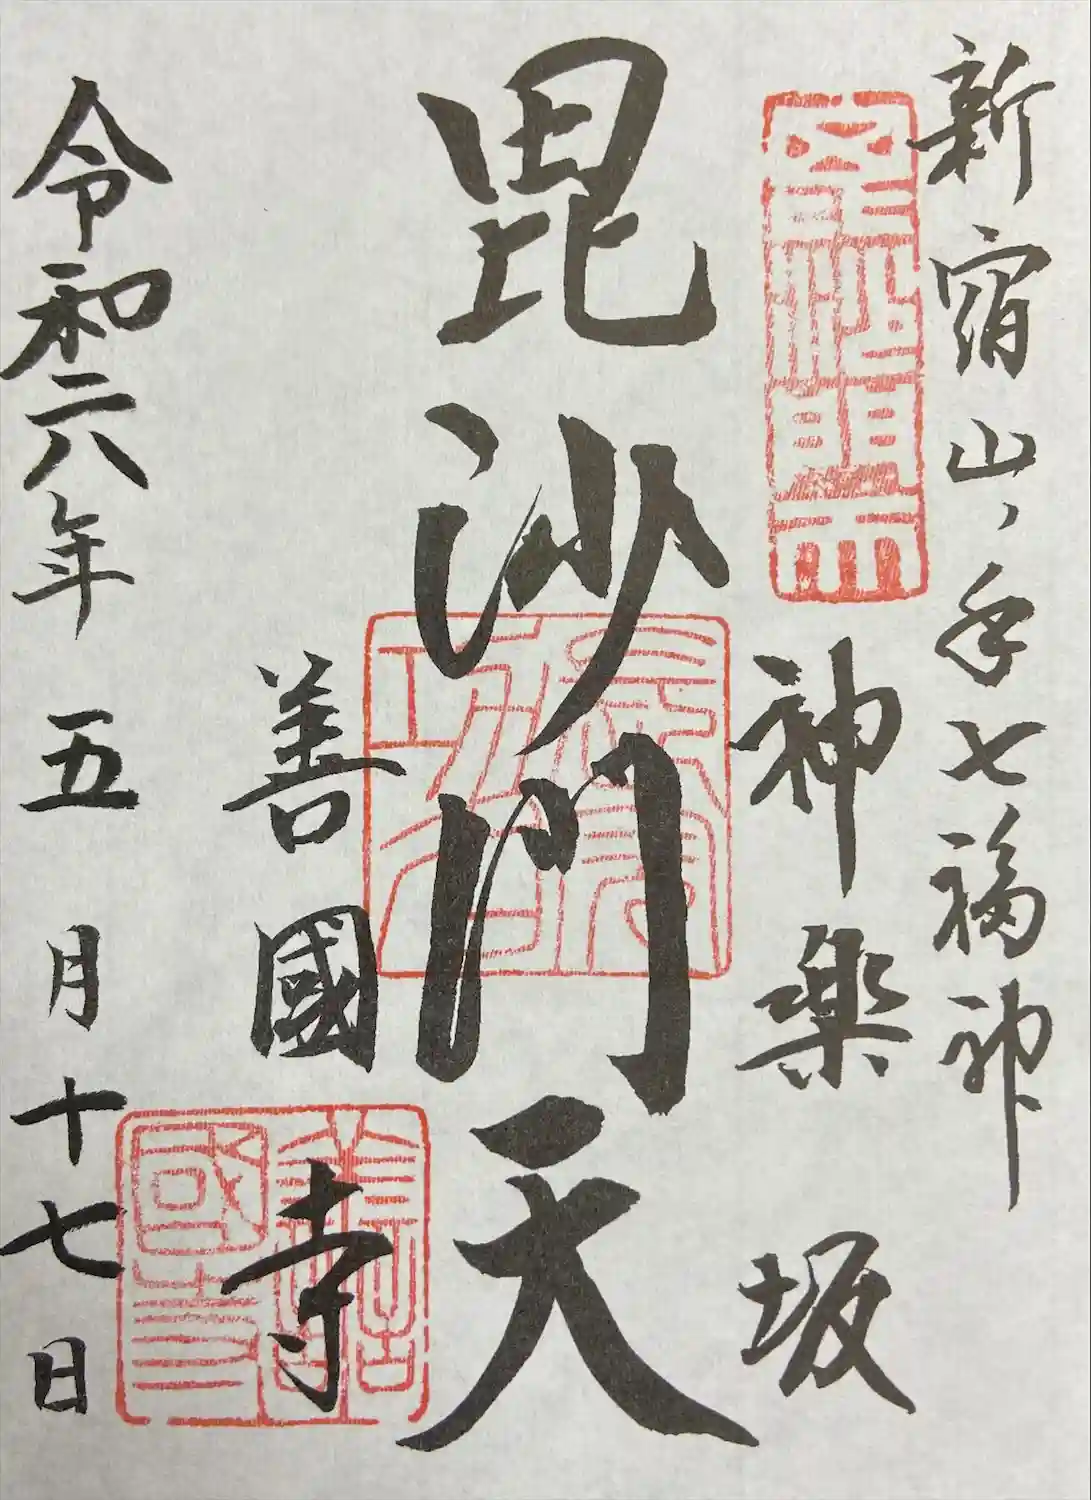 新宿山ノ手七福神
神楽坂
毘沙門天
善國寺
令和六年五月十七日
善國寺